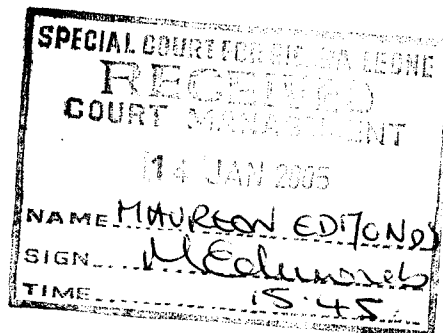 SPECIAL COURT FOR SIERRA LEONE
RECEIVED
COURT MANAGEMENT
14 JAN 2005
NAME MAUREEN EDMONDS
SIGN MEdmonds
TIME 15.45